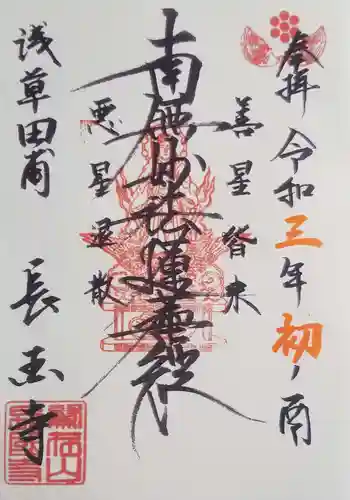 奉拝 令和三年初ノ酉
善星皆来
南無妙法蓮華経
悪星退散
浅草田甫
長国寺